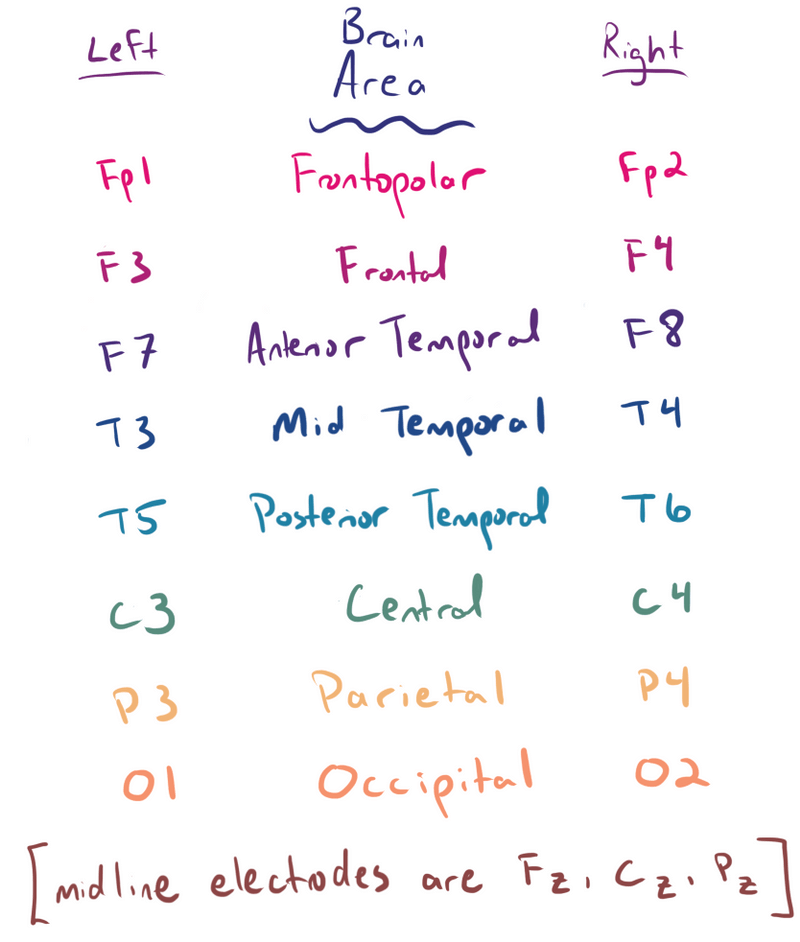 Left Brain Area Right
Fp1 Frontopolar Fp2
F3 Frontal F4
F7 Anterior Temporal F8
T3 Mid Temporal T4
T5 Posterior Temporal T6
C3 Central C4
P3 Parietal P4
O1 Occipital O2
[midline electrodes are Fz, Cz, Pz]